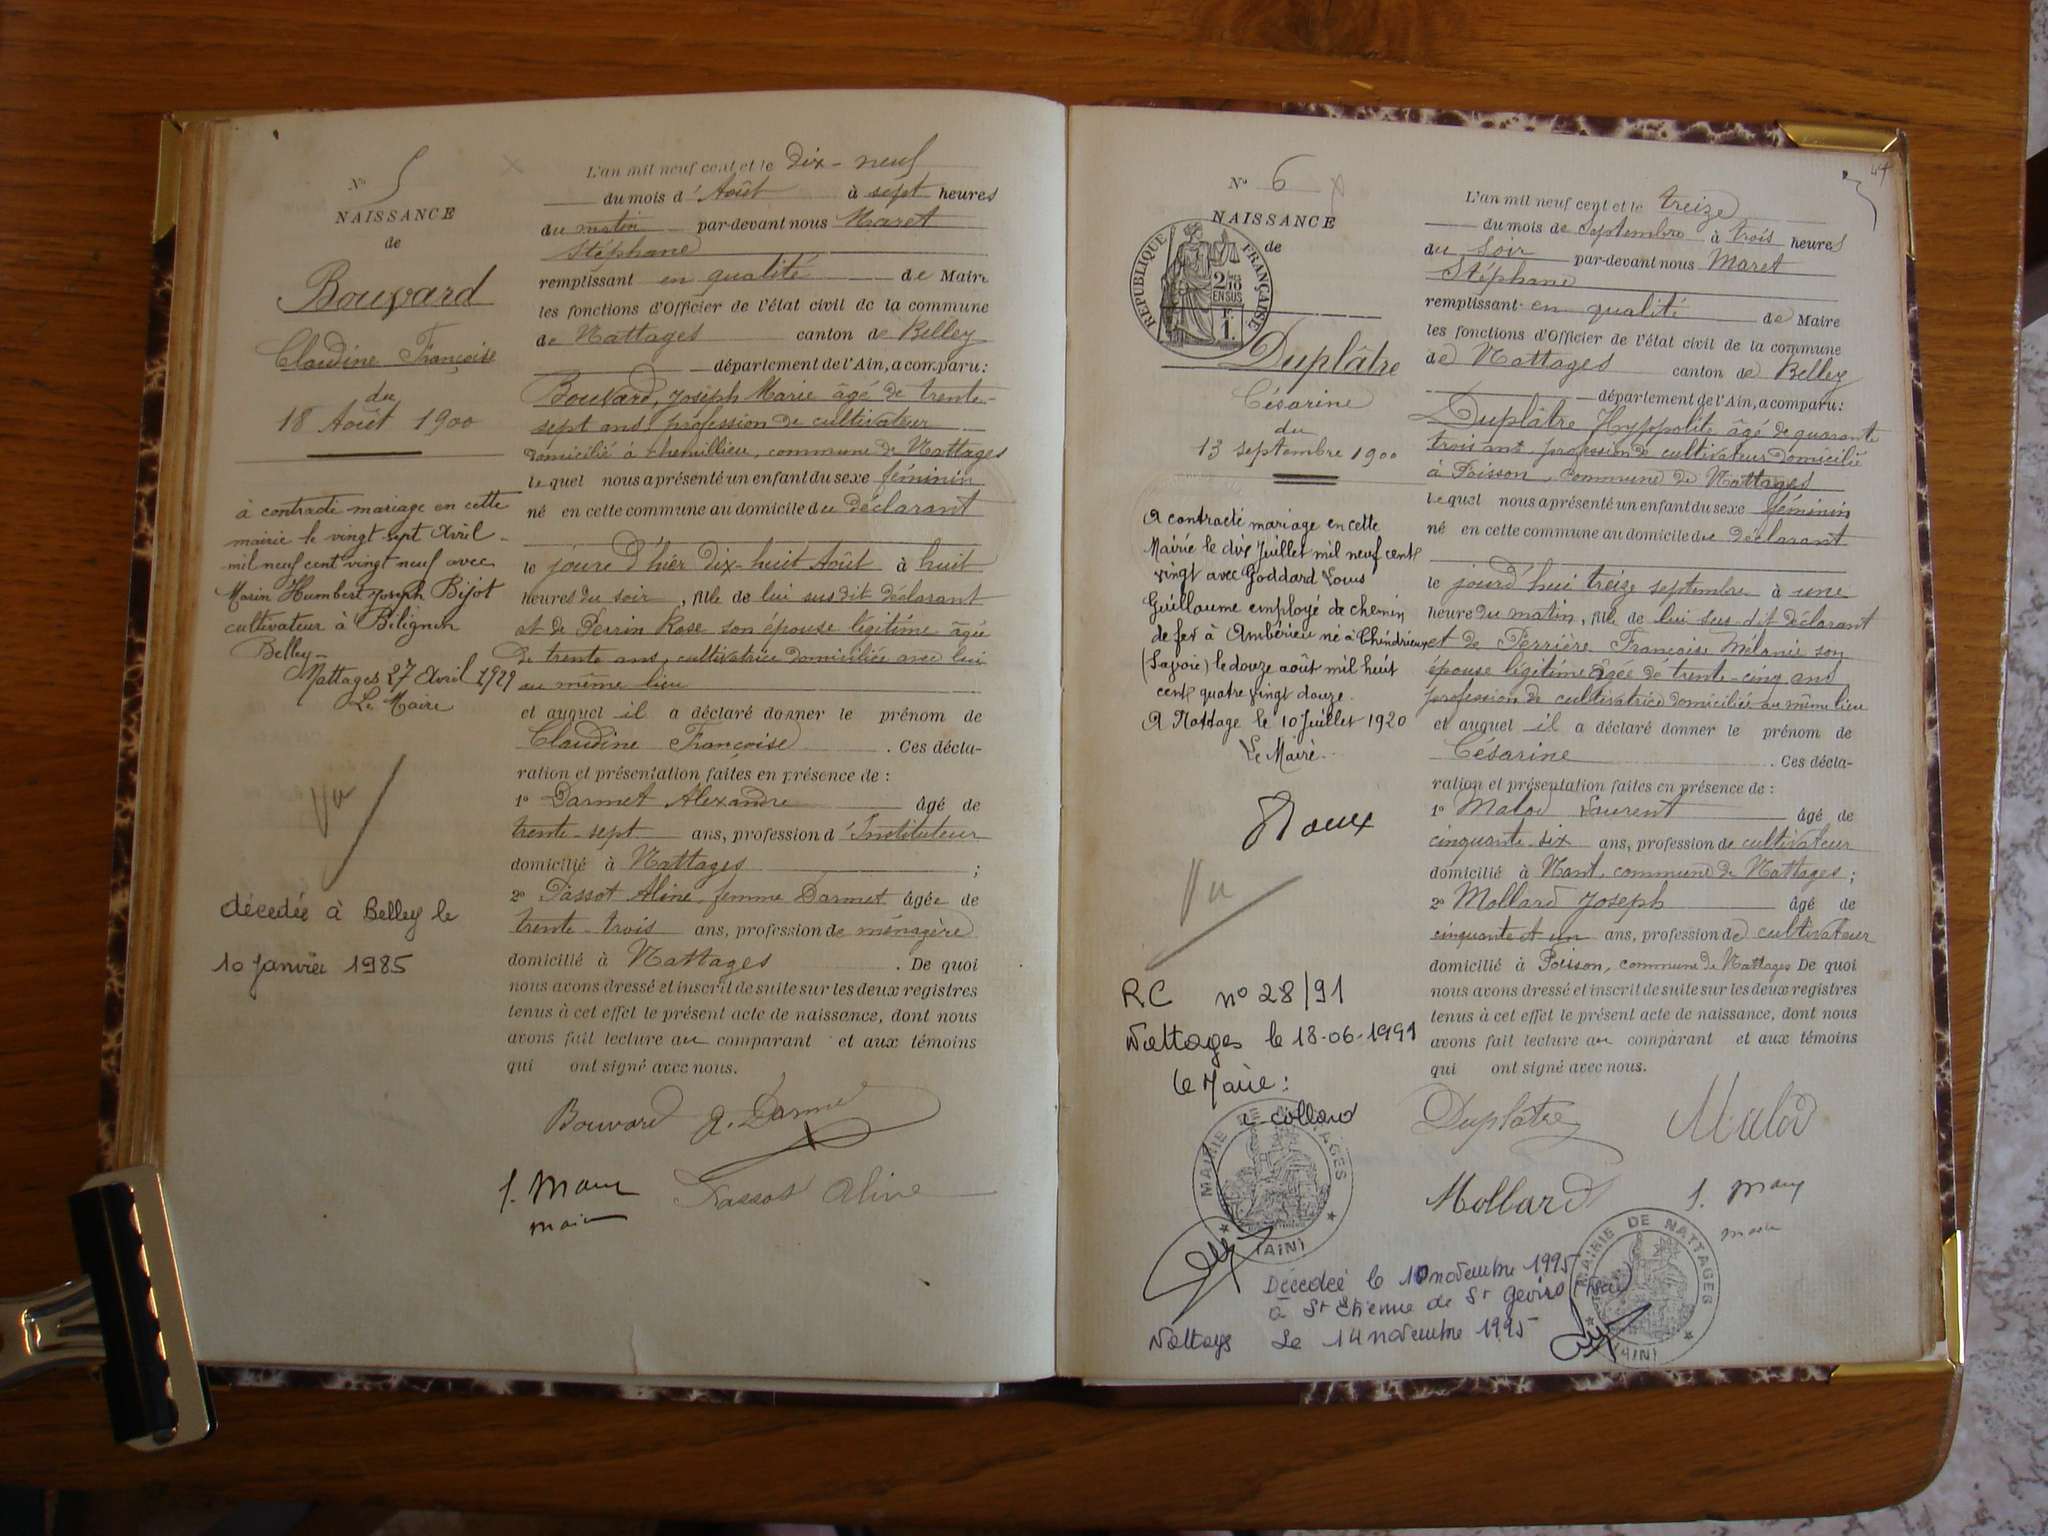 N° 5
NAISSANCE
de
Bouvard
Claudine Françoise
du
18 Août 1900
à contracté mariage en cette
mairie le vingt sept Avril
mil neuf cent vingt neuf avec
Marin Humbert Joseph Bijot
cultivateur à Bélignin
Belley_
Nattages 27 Avril 1929
Le Maire
Vu
décédée à Belley le
10 janvier 1985
L'an mil neuf cent et le Dix-neuf
du mois d'Août à sept heures
du matin par-devant nous Maret
Stéphane
remplissant en qualité de Maire
les fonctions d'Officier de l'état civil de la commune
de Nattages canton de Belley
département de l'Ain, a comparu:
Bouvard, Joseph Marie âgé de trente-
sept ans, profession de cultivateur
domicilié à chemillieu, commune de Nattages
lequel nous a présenté un enfant du sexe féminin
né en cette commune au domicile du déclarant
le jour d'hier dix-huit Août à huit
heures du soir, fille de lui susdit déclarant
et de Perrin Rose son épouse légitime âgée
de trente ans, cultivatrice domiciliée avec lui
au même lieu
et auquel il a déclaré donner le prénom de
Claudine Françoise. Ces décla-
ration et présentation faites en présence de:
1° Darmet Alexandre âgé de
trente-sept ans, profession d'Instituteur
domicilié à Nattages;
2° Passot Aline, femme Darmet âgée de
trente-trois ans, profession de ménagère
domicilié à Nattages. De quoi
nous avons dressé et inscrit de suite sur les deux registres
tenus à cet effet le présent acte de naissance, dont nous
avons fait lecture au comparant et aux témoins
qui ont signé avec nous.
Bouvard A. Darmet
Passot Aline
N° 6
NAISSANCE
de
RÉPUBLIQUE FRANÇAISE
2/10
EN SUS
1.
Duplâtre
Césarine
du
13 septembre 1900
A contracté mariage en cette
Mairie le dix Juillet mil neuf cent
vingt avec Goddard Louis
Guillaume employé de chemin
de fer à Ambérieu né à Chindrieux
(Savoie) le douze août mil huit
cent quatre vingt douze.
A Nattage le 10 Juillet 1920
Le Maire.
Roux
Vu
RC n° 28/91
Nattages le 18-06-1991
Le Maire:
MAIRIE DE NATTAGES
(AIN)
Décédée le 10 novembre 1995
à St Etienne de St Geoirs (Isère)
Nattages Le 14 novembre 1995
L'an mil neuf cent et le treize
du mois de septembre à trois heures
du soir par-devant nous Maret
Stéphane
remplissant en qualité de Maire
les fonctions d'Officier de l'état civil de la commune
de Nattages canton de Belley
département de l'Ain, a comparu:
Duplâtre Hyppolite âgé de quarante
trois ans profession de cultivateur domicilié
à Poisson, commune de Nattages
lequel nous a présenté un enfant du sexe féminin
né en cette commune au domicile du déclarant
le jourd'hui treize septembre à une
heure du matin, fille de lui sus-dit déclarant
et de Ferrière Françoise Mélanie son
épouse légitime âgée de trente-cinq ans
profession de cultivatrice domiciliée au même lieu
et auquel il a déclaré donner le prénom de
Césarine. Ces décla-
ration et présentation faites en présence de:
1° Malod Laurent âgé de
cinquante-six ans, profession de cultivateur
domicilié à Nant, commune de Nattages;
2° Mollard Joseph âgé de
cinquante et un ans, profession de cultivateur
domicilié à Poisson, commune de Nattages De quoi
nous avons dressé et inscrit de suite sur les deux registres
tenus à cet effet le présent acte de naissance, dont nous
avons fait lecture au comparant et aux témoins
qui ont signé avec nous.
Duplâtre Malod
Mollard
MAIRIE DE NATTAGES
(AIN)